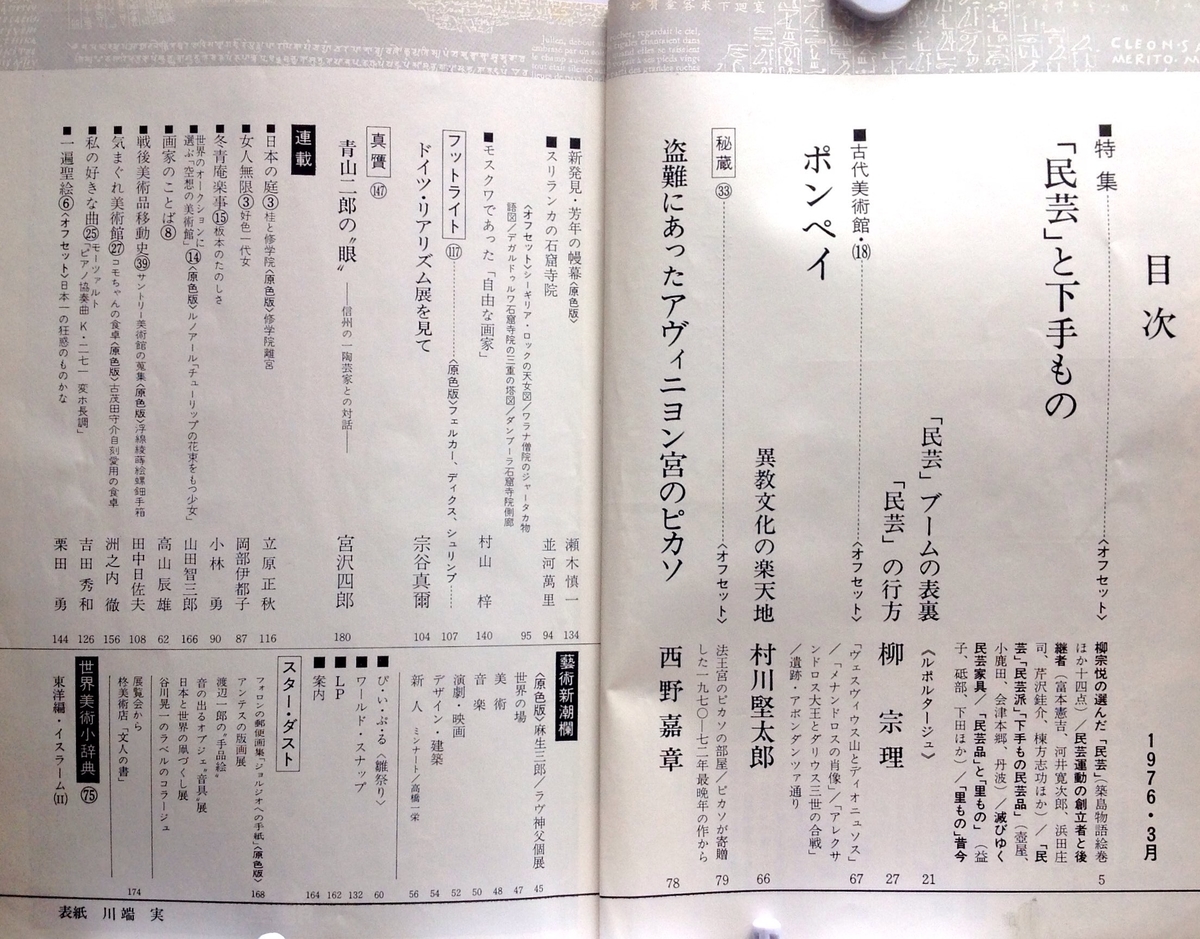 目次
1976・3月
■特集
〈オフセット〉
「民芸」と下手もの
柳宗悦の選んだ「民芸」（築島物語絵巻
ほか十四点）／民芸運動の創立者と後
継者（富本憲吉、河井寛次郎、浜田庄
司、芹沢銈介、棟方志功ほか）／「民
芸」「民芸派」「下手もの民芸品」（壺屋、
小鹿田、会津本郷、丹波）／滅びゆく
民芸家具／「民芸品」と「里もの」（益
子、砥部、下田ほか）／「里もの」昔今
5
「民芸」ブームの表裏 〈ルポルタージュ〉 21
「民芸」の行方 柳宗理 27
■古代美術館・⒅ 〈オフセット〉
ポンペイ
「ヴェスヴィウス山とディオニュソス」
／「メナンドロスの肖像」／「アレクサ
ンドロス大王とダリウス三世の合戦」
／遺跡・アボンダンツァ通り
67
異教文化の楽天地 村川堅太郎 66
秘蔵 ㉝ 〈オフセット〉
法王宮のピカソの部屋／ピカソが寄贈
した一九七〇―七二年最晩年の作から
79
盗難にあったアヴィニヨン宮のピカソ 西野嘉章 78
■新発見・芳年の幔幕〈原色版〉 瀬木慎一 134
■スリランカの石窟寺院 並河萬里 94
〈オフセット〉シーギリア・ロックの天女図／ワラナ僧院のジャータカ物
語図／デガルドゥルワ石窟寺院の三重の塔図／ダンブーラ石窟寺院側廊
95
■モスクワであった「自由な画家」 村山梓 140
フットライト (117) 〈原色版〉フェルカー、ディクス、シュリンプ 107
ドイツ・リアリズム展を見て 宗谷真爾 104
真贋 (147)
青山二郎の〝眼〟 ――信州の一陶芸家との対話―― 宮沢四郎 180
連載
■日本の庭③ 桂と修学院〈原色版〉修学院離宮 立原正秋 116
■女人無限③ 好色一代女 岡部伊都子 87
■冬青庵楽事⑮ 板本のたのしさ 小林勇 90
■世界のオークションに
選ぶ「空想の美術館」⑭〈原色版〉ルノアール「チューリップの花束をもつ少女」 山田智三郎 166
■画家のことば⑧ 高山辰雄 62
■戦後美術品移動史㊴ サントリー美術館の蒐集〈原色版〉浮線綾蒔絵螺鈿手箱 田中日佐夫 108
■気まぐれ美術館㉗ コモちゃんの食卓〈原色版〉古茂田守介自刻愛用の食卓 洲之内徹 156
■私の好きな曲㉕ モーツァルト
「ピアノ協奏曲 K・二七一 変ホ長調」 吉田秀和 126
■一遍聖絵⑥〈オフセット〉日本一の狂惑のものかな 栗田勇 144
藝術新潮欄
〈原色版〉麻生三郎／ラヴ神父個展 45
世界の場 47
美術 48
音楽 50
演劇・映画 52
デザイン・建築 54
新人 ミンナート／高橋一栄 56
■ぴ・い・ぷ・る〈雛祭り〉 60
■ワールド・スナップ 132
■LP 162
■案内 164
スター・ダスト
フォロンの郵便画集「ジョルジオへの手紙」〈原色版〉 168
アンテスの版画展
渡辺一郎の〝手品絵〟
音の出るオブジェ〝音具〟展
日本と世界の凧づくし展
谷川晃一のラベルのコラージュ
展覧会から
柊美術店「文人の書」
174
世界美術小辞典 (75)
東洋編・イスラーム(II)
表紙 川端 実
Julien, debout
CLEON'S
MERITO.M